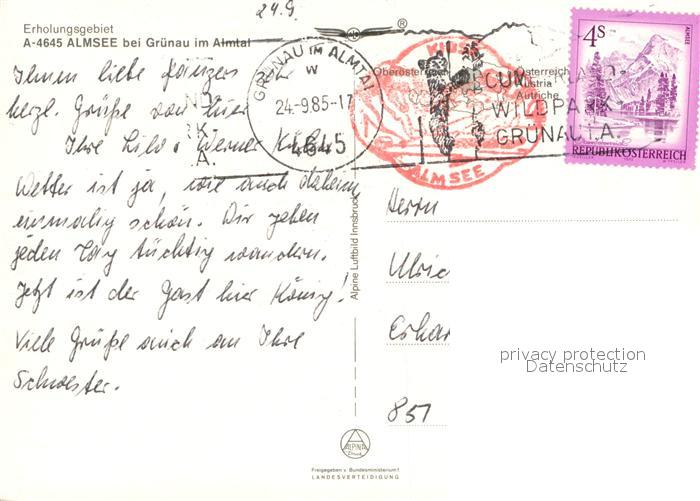 24.9.
Erholungsgebiet
A-4645 ALMSEE bei Grünau im Almtal
®
Oberösterreich
Österreich
Austria
Autriche
GRÜNAU IM ALMTAL
24.-9.85-17
4645
CUM
WILDPARK
GRÜNAU I.A.
ALMSEE
4S
ALMSEE
REPUBLIK ÖSTERREICH
Ihnen liebe
herzl. Grüße von hier
Ihre Lilo + Werner
Wetter ist ja, wie auch daheim,
einmalig schön. Wir gehen
jeden Tag tüchtig wandern.
Jetzt ist der Gast hier König!
Viele Grüße auch an Ihre
Schwester.
Alpine Luftbild Innsbruck
Herrn
Ulric
Erhar
851
privacy protection
Datenschutz
ALPINA
Druck
Freigegeben v. Bundesministerium f.
LANDESVERTEIDIGUNG